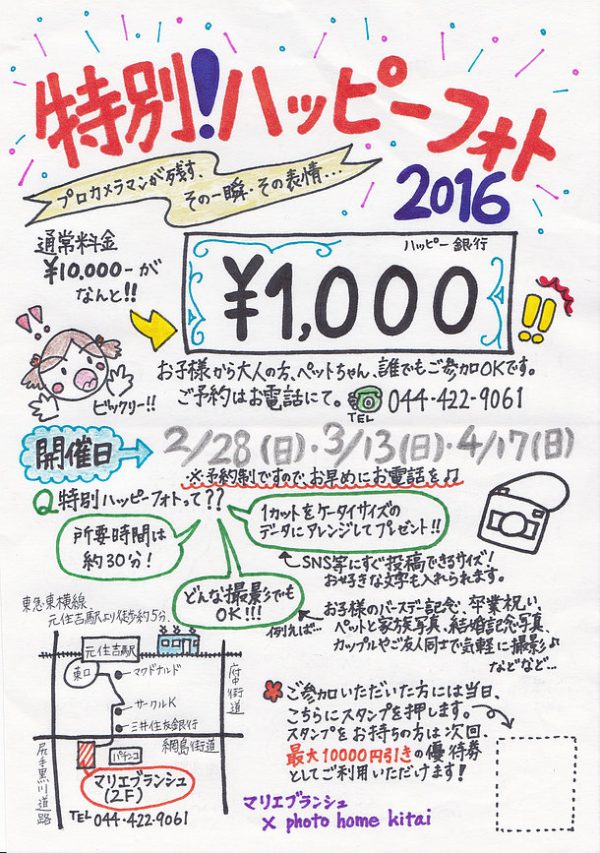 特別!ハッピーフォト
2016
プロカメラマンが残す、
その一瞬・その表情...
通常料金
¥10,000-が
なんと!!
ハッピー銀行
¥1,000
!!
!!
ビックリー!!
お子様から大人の方、ペットちゃん、誰でもご参加OKです。
ご予約はお電話にて。 TEL 044-422-9061
開催日
2/28(日)・3/13(日)・4/17(日)
※予約制ですので、お早めにお電話を♫
Q 特別ハッピーフォトって??
所要時間は
約30分!
1カットをケータイサイズの
データにアレンジしてプレゼント!!
SNS等にすぐ投稿できるサイズ!
お好きな文字も入れられます。
どんな撮影でも
OK!!!
例えば...
お子様のバースデー記念、卒業祝い、
ペットと家族写真、結婚記念写真、
カップルやご友人同士で気軽に撮影♪
などなど...
東急東横線
元住吉駅より徒歩約5分
元住吉駅
東口
マクドナルド
サークルK
三井住友銀行
府中街道
綱島街道
パチンコ
尻手黒川道路
マリエブランシュ
(2F)
TEL 044-422-9061
ご参加いただいた方には当日、
こちらにスタンプを押します。
スタンプをお持ちの方は次回、
最大10000円引きの優待券
としてご利用いただけます!
マリエブランシュ
× photo home kitai